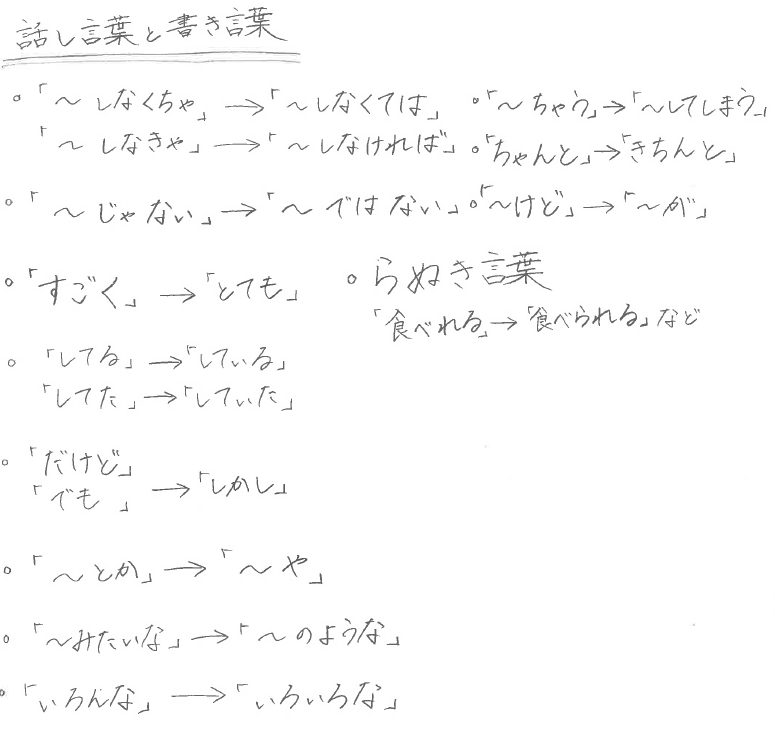 話し言葉と書き言葉
。「～しなくちゃ」→「～しなくては」 。「～ちゃう」→「～してしまう」
「～しなきゃ」→「～しなければ」 。「ちゃんと」→「きちんと」
。「～じゃない」→「～ではない」 。「～けど」→「～が」
。「すごく」→「とても」 。らぬき言葉
「食べれる」→「食べられる」など
。「してる」→「している」
「してた」→「していた」
。「だけど」
「でも」→「しかし」
。「～とか」→「～や」
。「～みたいな」→「～のような」
。「いろんな」→「いろいろな」